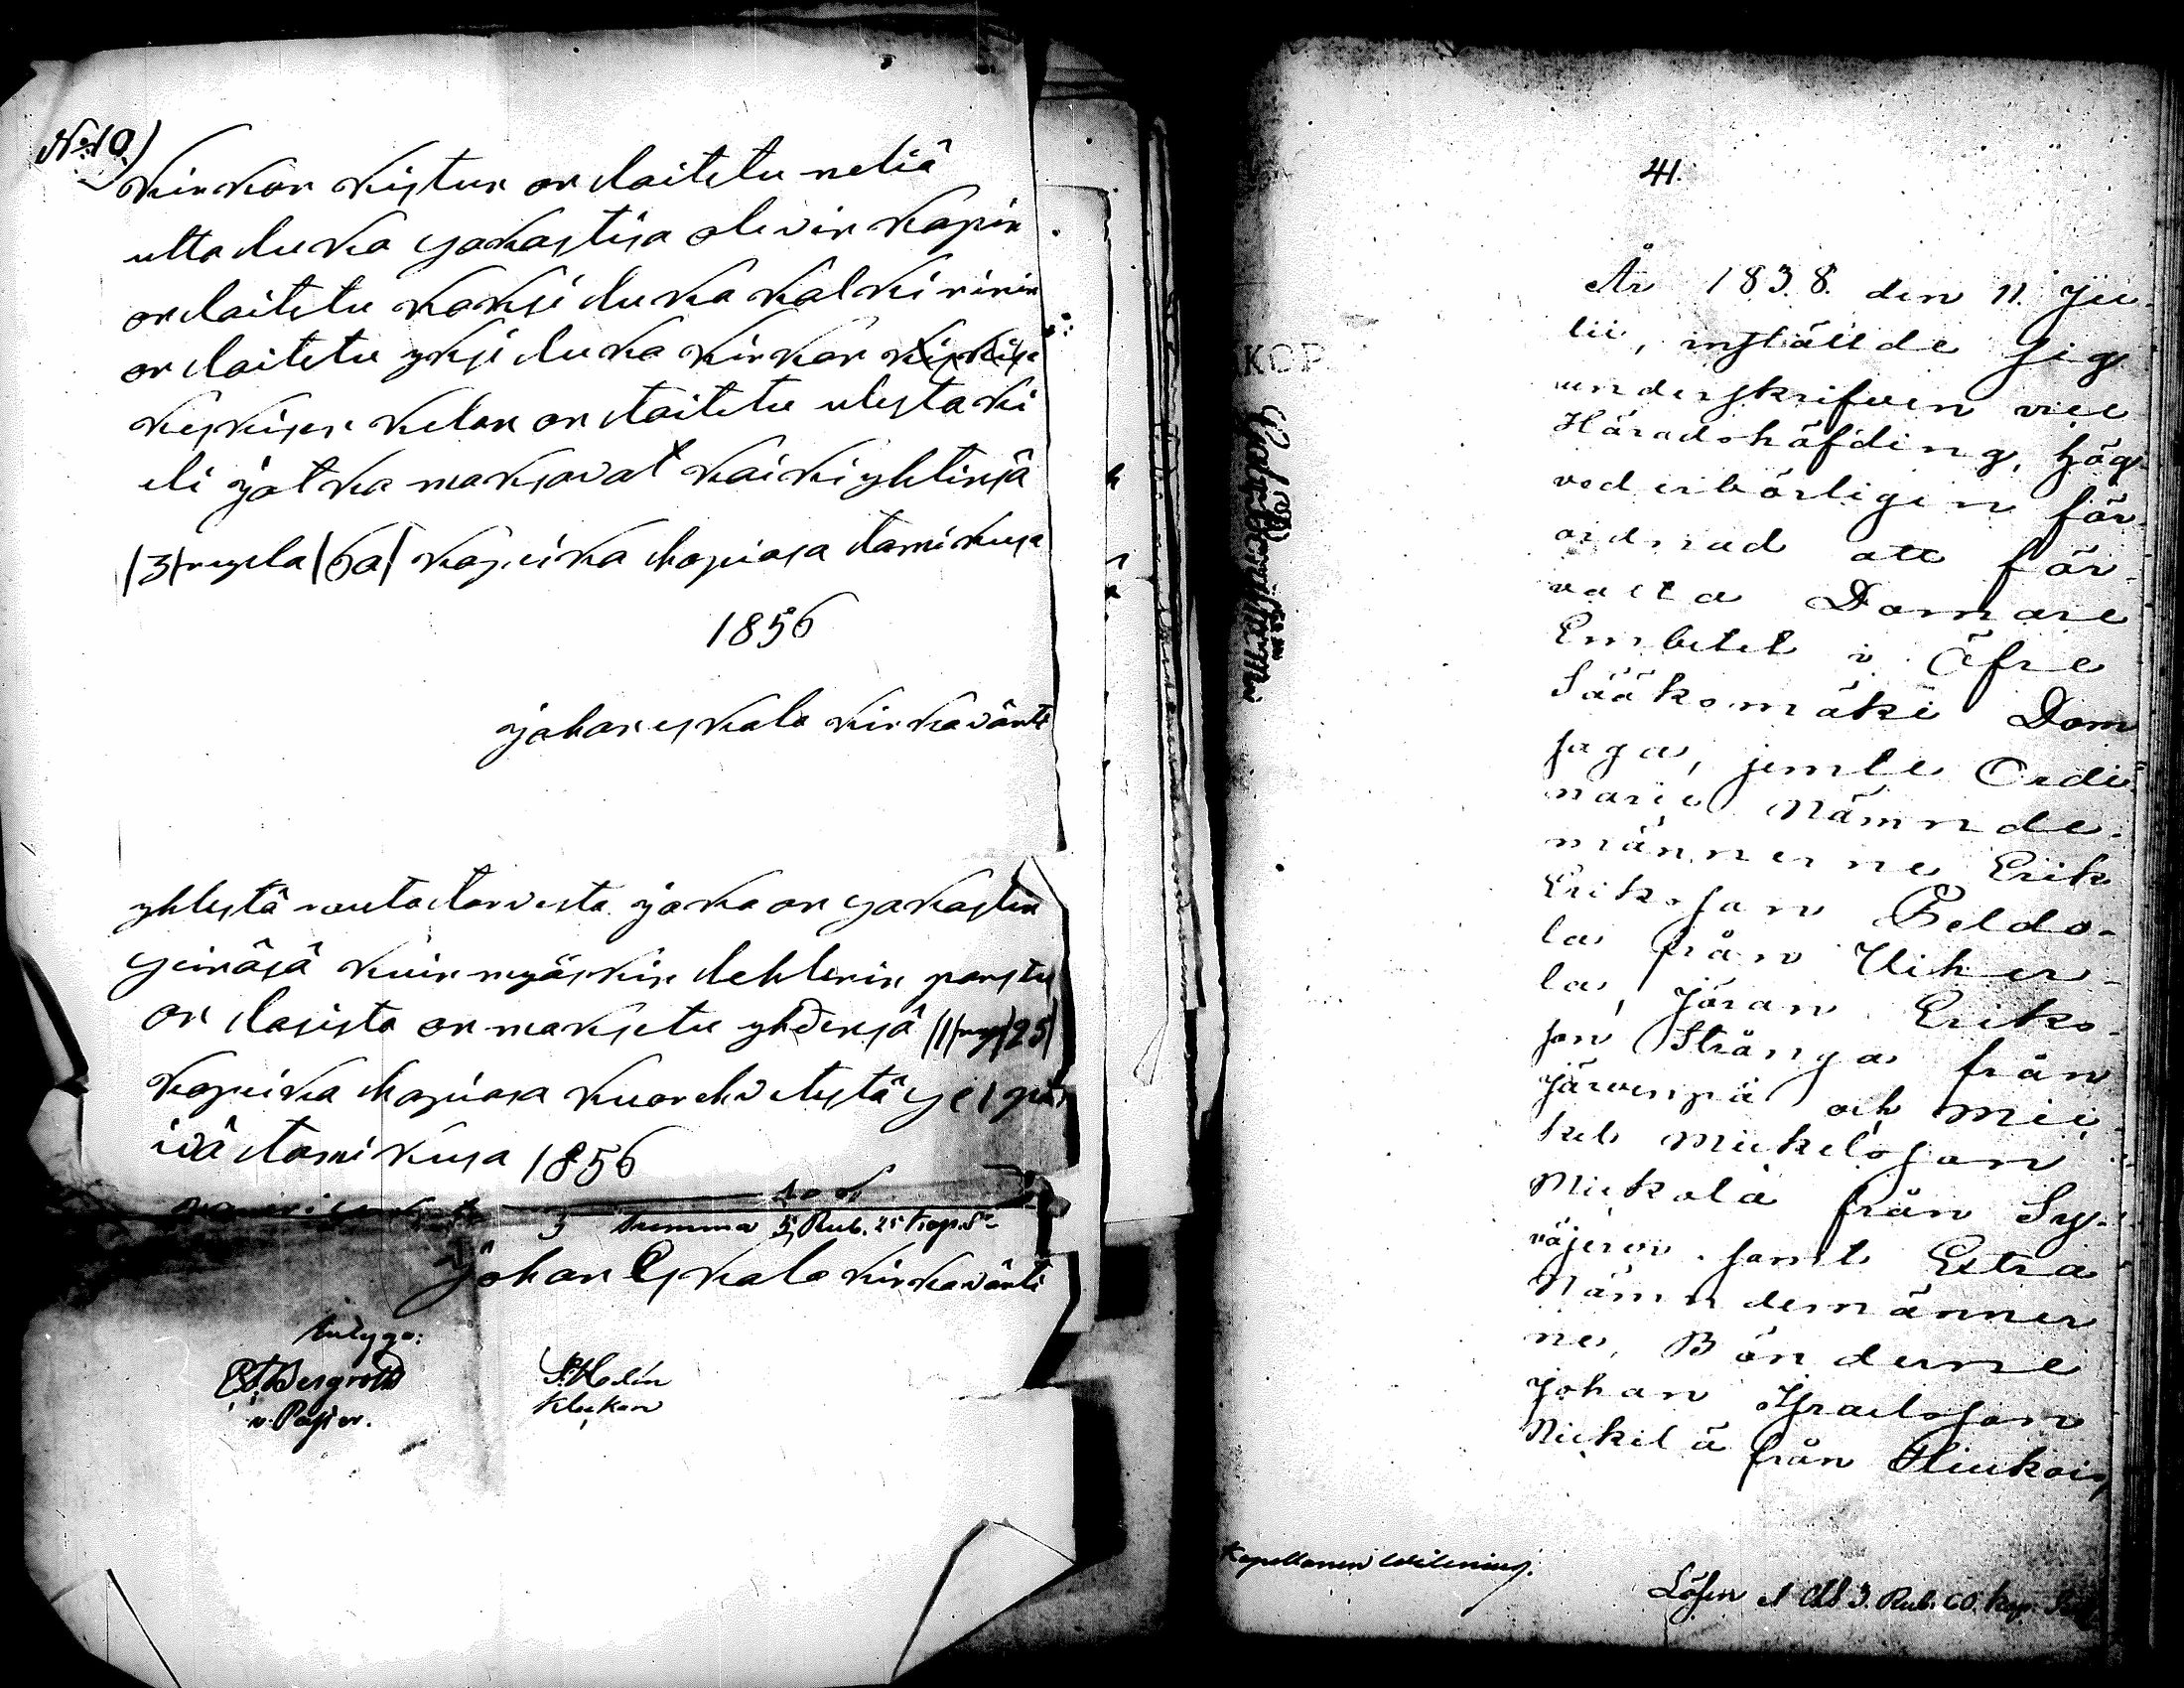 No 10)
Kirkon Kistun on laitetu neliä
utta luka sakastisa olevin kapin
on laitetu kaksi luka kalki nihin
on laitetu yksi luka kirkon
keskisen kelon on laitetu ulestaki
eli jotka maksavat kaiki yhtensä
/3/ rupla /60/ kopeika hopiasa tamikusa
1856
johan eskola kirkovänti
yhtestä rautatarvesta joka on sakastin
seinäsä kuin myöskin lehterin parstu
on lasista on maksetu yhdensä /1/ rup /25/
kopeika hopiasa kuen
ivä tamikusa 1856
Summa 5 Rub. 25 kop. Sr
Johan Eskola kirkovänti
Intyga:
E. J. Bergroth
v. Pastor.
S. Hedén
Klockare
41.
År 1838. den 11. Ju-
lii, instälde sig
underskrifven vice
Häradshöfding, hög-
vederbörligen för-
ordnad att för-
valta Domare
Embetet i Öfre
Sääksmäki Dom
saga, jemte Ordi-
narie Nämnde-
männerne Erik
Eriksson Peldo-
la från Uiher-
la, Jöran Eriks-
son Stränga från
Järvenpä och Mic-
kel Mickelsson
Mickola från Sy-
väjervi samt Extra
Nämndemänner
ne, Bönderne
Johan Israelsson
Mickilä från
Kapellanen
Lösen 3. Rub. 60. kop.